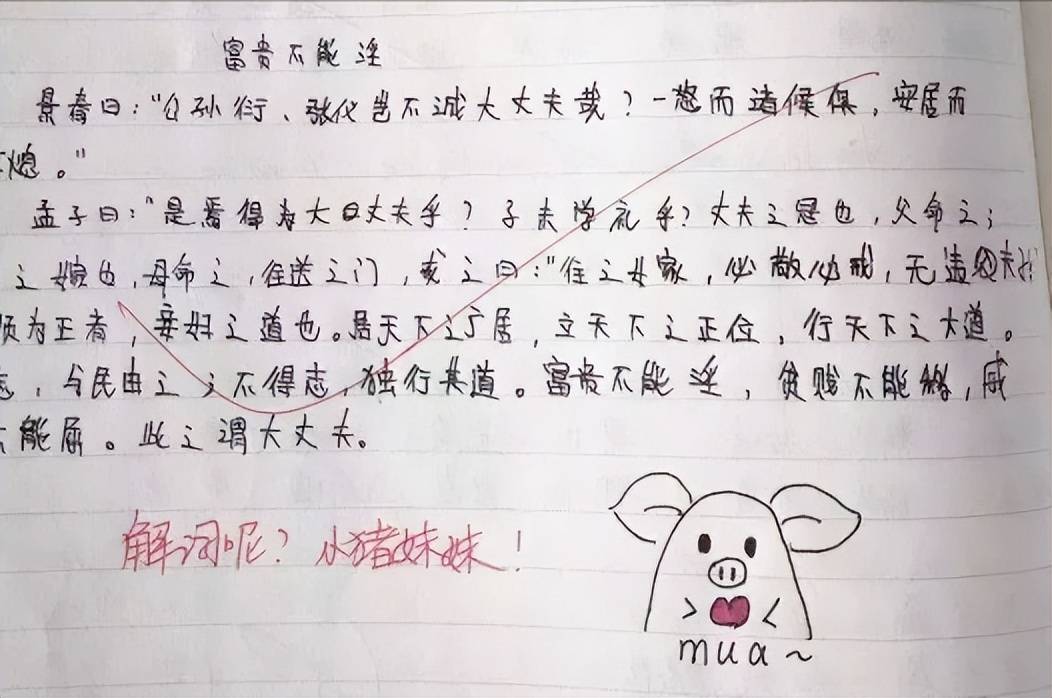 富贵不能淫
景春曰："公孙衍、张仪岂不诚大丈夫哉？一怒而诸候俱，安居而
熄。"
孟子曰："是焉得为大丈夫乎？子未学礼乎？丈夫之冠也，父命之；
之嫁也，母命之，往送之门，戒之曰："往之女家，必敬必戒，无违夫
顺为正者，妾妇之道也。居天下之广居，立天下之正位，行天下之大道。
志，与民由之；不得志，独行其道。富贵不能淫，贫贱不能移，威
不能屈。此之谓大丈夫。
解词呢？小猪妹妹！
mua~